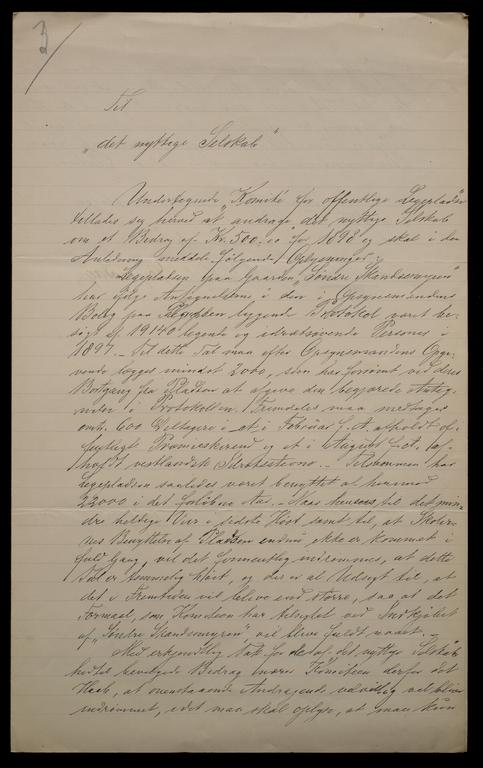 3
Til
"det nyttige Selskab"
Undertegnede Komite for offentlige Legepladse
tillader sig herved at andrage det nyttige Selskab
om et Bidrag af Kr. 500.00 for 1898 og skal i den
Anledning meddele følgende Oplysninger:
Legepladsen paa Gaarden "Søndre Skandsemyren"
har ifølge Antegnelserne i den i Opsynsmandens
Bolig paa Pladsen liggende Protokol været be-
søgt af 19140 legende og idrætsøvende Personer i
1897. Til dette Tal maa efter Opsynsmandens Opgi-
vende lægges mindst 2000, som har forsømt ved deres
Bortgang fra Pladsen at afgive den begjærede Anteg-
nelse i Protokollen. Fremdeles maa medtages
omtr. 600 Deltagere i et i Februar f. A. afholdt of-
fentligt Præmieskirend og et i August f. A. af-
holdt vestlandsk Idrætsstevne. Tilsammen har
Legepladsen saaledes været benyttet af henimod
22000 i det forløbne Aar. Naar hensees til det min-
dre heldige Veir i sidste Høst samt til, at Skoler-
nes Benyttelse af Pladsen endnu ikke er kommet i
fuld Gang, vil det formentlig indrømmes, at dette
Tal er temmelig stort, og der er al Udsigt til, at
det i Fremtiden vil blive end større, saa at det
Formaal, som Komiteen har tilsigtet ved Indkjøbet
af "Søndre Skandsemyren", vil blive fuldt naaet.
Med erkjendtlig Tak for det af det nyttige Selskab
hidtil bevilgede Bidrag nærer Komiteen derfor det
Haab, at ovenstaaende Andragende velvillig vil blive
indrømmet, idet man skal oplyse, at man kun